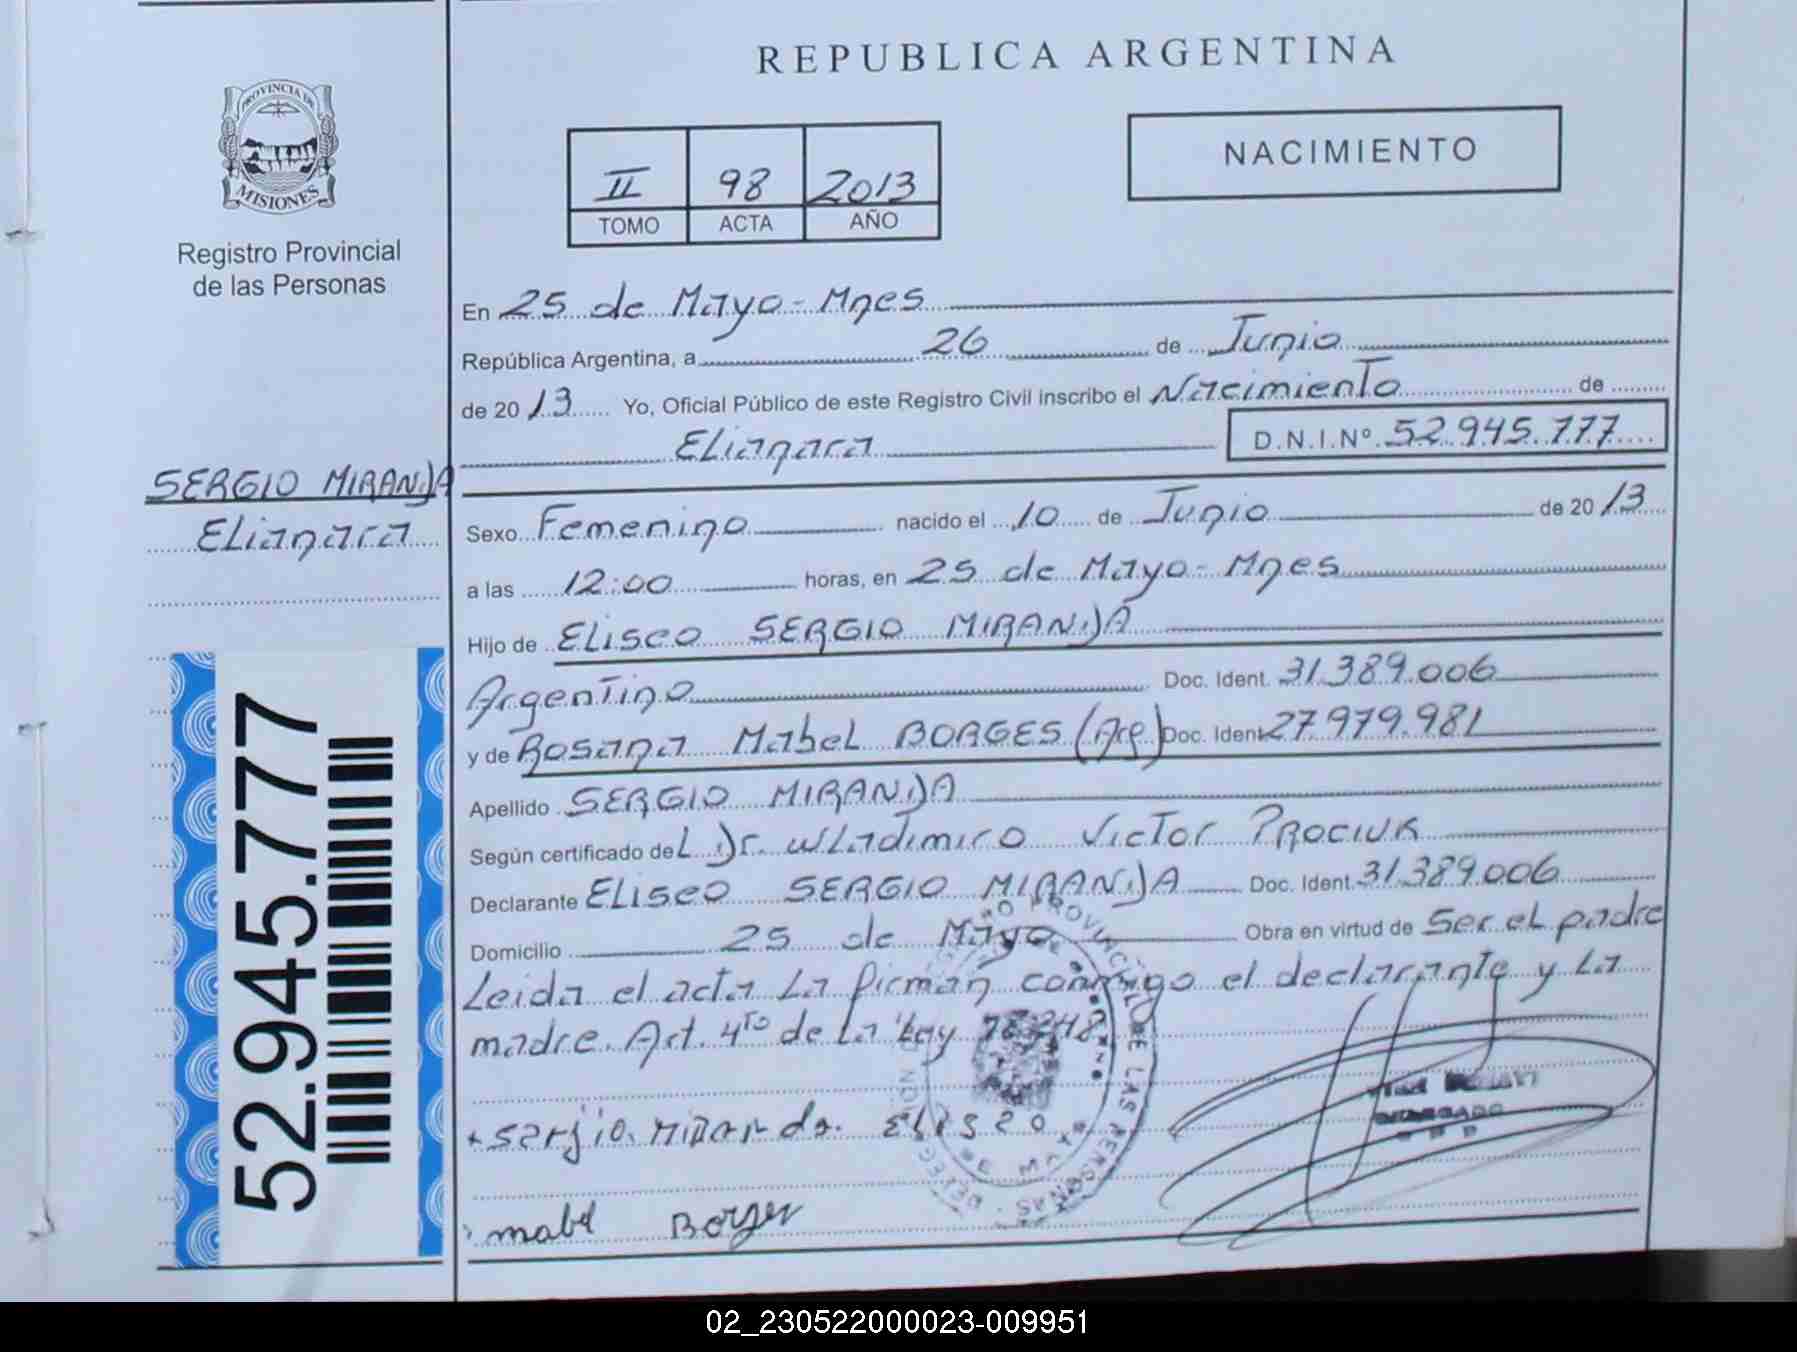 REPUBLICA ARGENTINA
PROVINCIA DE
MISIONES
Registro Provincial
de las Personas
II 98 2013
TOMO ACTA AÑO
NACIMIENTO
En 25 de Mayo-Mnes
República Argentina, a 26 de Junio
de 20 13 Yo, Oficial Público de este Registro Civil inscribo el Nacimiento de
Elianara D.N.I.Nº 52.945.777
SERGIO MIRANDA
Elianara
Sexo Femenino nacido el 10 de Junio de 20 13
a las 12:00 horas, en 25 de Mayo-Mnes
Hijo de Eliseo SERGIO MIRANDA
Argentino Doc. Ident. 31.389.006
y de Rosana Mabel BORGES (Arg) Doc. Ident 27.979.981
Apellido SERGIO MIRANDA
Según certificado del Dr. Wladimiro Victor PROCIUK
Declarante Eliseo SERGIO MIRANDA Doc. Ident. 31.389.006
Domicilio 25 de Mayo Obra en virtud de Ser el padre
Leida el acta La firman conmigo el declarante y La
madre. Art. 4to de La Ley 18.248
serjio. MiranDo. Eliseo
mabel Borges
52.945.777
DELEGADO
02_230522000023-009951